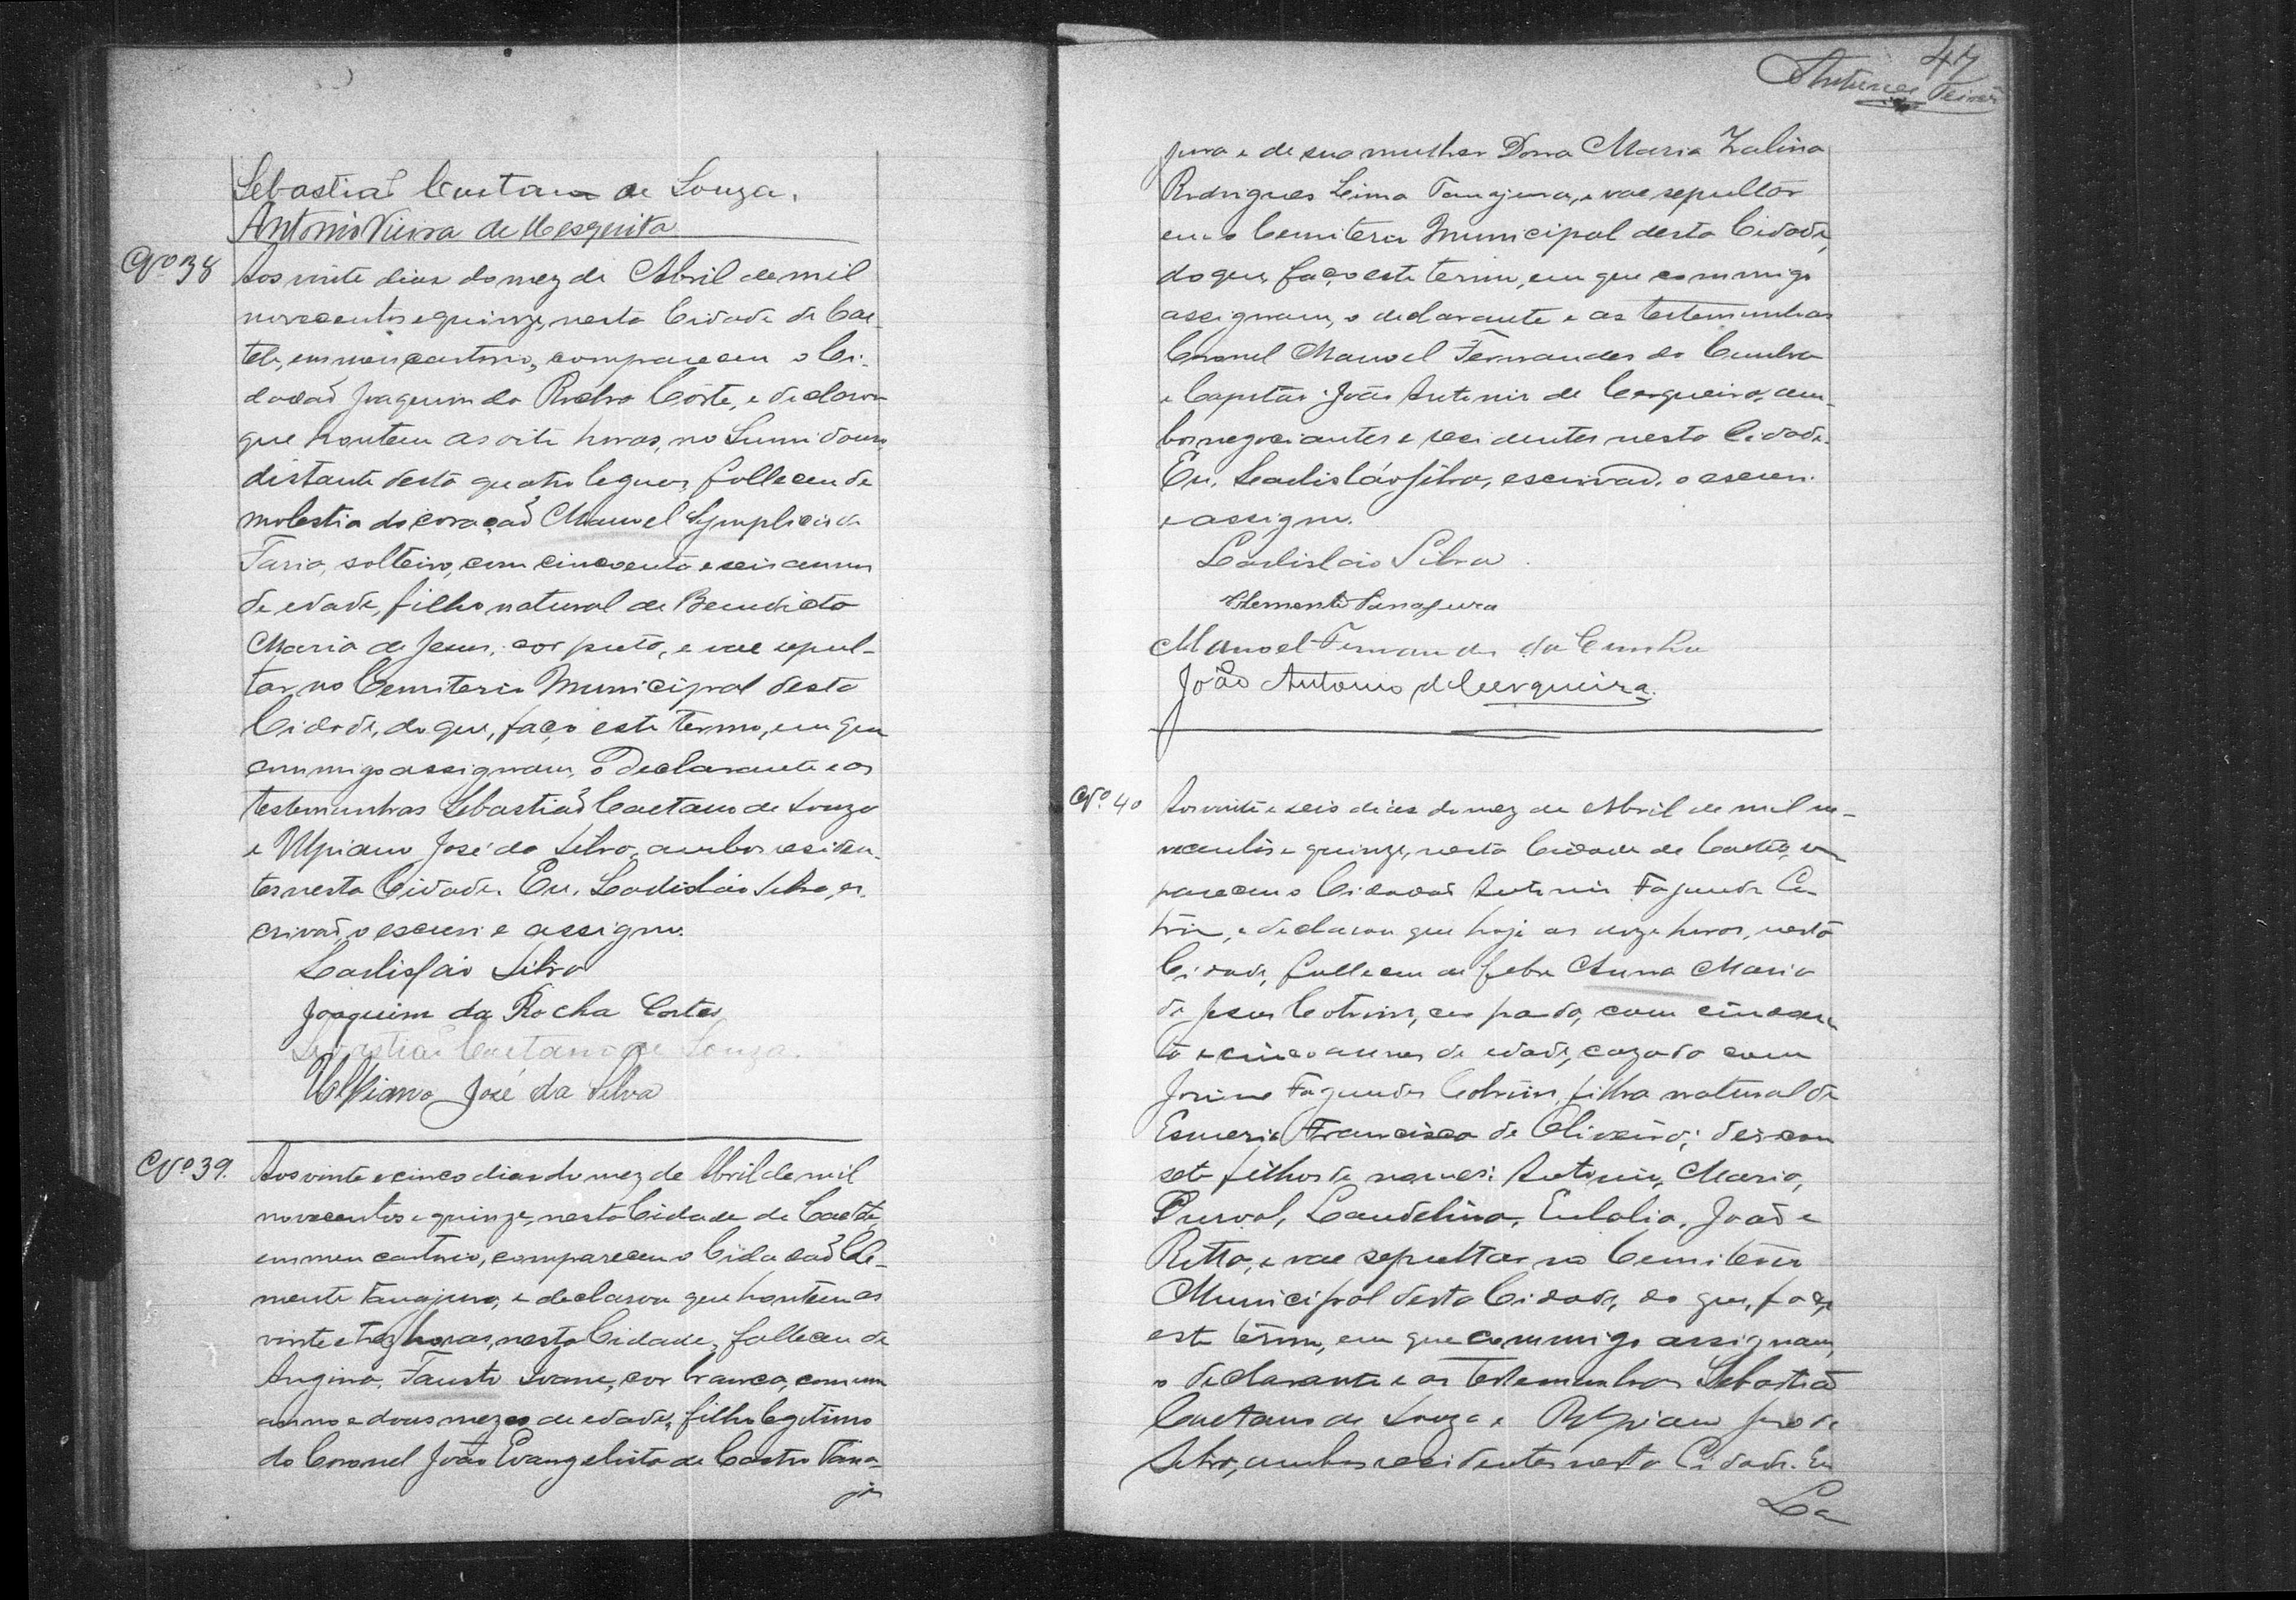 Sebastiaõ Caetano de Souza.
Antonio Vieira de Mesquita
Nº 38
Aos vinte dias do mez de Abril de mil
novecentos e quinze, nesta Cidade de Cae-
teté, em meu cartorio, compareceu o Ci-
dadaõ Joaquim da Rocha Côrte, e declarou
que hontem as oito horas, no Sumidouro,
distante desta quatro leguas, falleceu de
molestia do coraçaõ Manoel Symplicio de
Faria, solteiro, com cincoenta e seis annos
de edade, filho natural de Benedicta
Maria de Jesus, cor preta, e vae sepul-
tar no Cemiterio Municipal desta
Cidade, do que, faço este termo, em que
commigo assignam, o declarante e as
testemunhas Sebastiaõ Caetano de Souza
e Ulpiano José da Silva, ambos residen-
tes nesta Cidade. Eu, Ladisláo Silva, es-
crivaõ, o escrevi e assigno.
Ladisláo Silva
Joaquim da Rocha Cortes
Sebastiaõ Caetano de Souza.
Ulpiano José da Silva
Nº 39.
Aos vinte e cinco dias do mez de Abril de mil
novecentos e quinze, nesta Cidade de Caeteté,
em meu cartorio, compareceu o Cidadaõ Cle-
mente Tanajura, e declarou que hontem as
vinte e trez horas, nesta Cidade, falleceu de
Angina, Fausto Ivane, cor branca, com um
anno e dous mezes de edade, filho legitimo
do Coronel João Evangelista de Castro Tana-
ju
47
Antunes Teixeira
jura e de sua mulher Dona Maria Zalina
Rodrigues Lima Tanajura, e vae sepultar
em o Cemiterio Municipal desta Cidade,
do que, faço este termo, em que commigo
assignam, o declarante e as testemunhas
Coronel Manoel Fernandes da Cunha
e Capitão João Antonio de Cerqueira, am-
bos negociantes e residentes nesta Cidade.
Eu, Ladisláo Silva, escrivaõ, o escrevi
e assigno.
Ladisláo Silva.
Clemente Tanajura
Manoel Fernandes da Cunha
João Antonio de Cerqueira.
Nº 40
Aos vinte e seis dias do mez de Abril de mil no-
vecentos e quinze, nesta Cidade de Caeteté, com
pareceu o Cidadaõ Antonio Fagundes Co
trim, e declarou que hoje as onze horas, nesta
Cidade, falleceu de febre Anna Maria
de Jesus Cotrim, cor parda, com cincoen
ta e cinco annos de edade, cazada com
Fagundes Cotrim, filha natural de
Esmeria Francisca de Oliveira; deixou
sete filhos de nomes: Antonio, Maria,
Durval, Laudelina, Eulalia, Joaõ e
Ritta, e vae sepultar no Cemiterio
Municipal desta Cidade, do que, faço
este termo, em que commigo assignam,
o declarante e as testemunhas Sebastiaõ
Caetano de Souza e Ulpiano José da
Silva, ambos residentes nesta Cidade. Eu
La